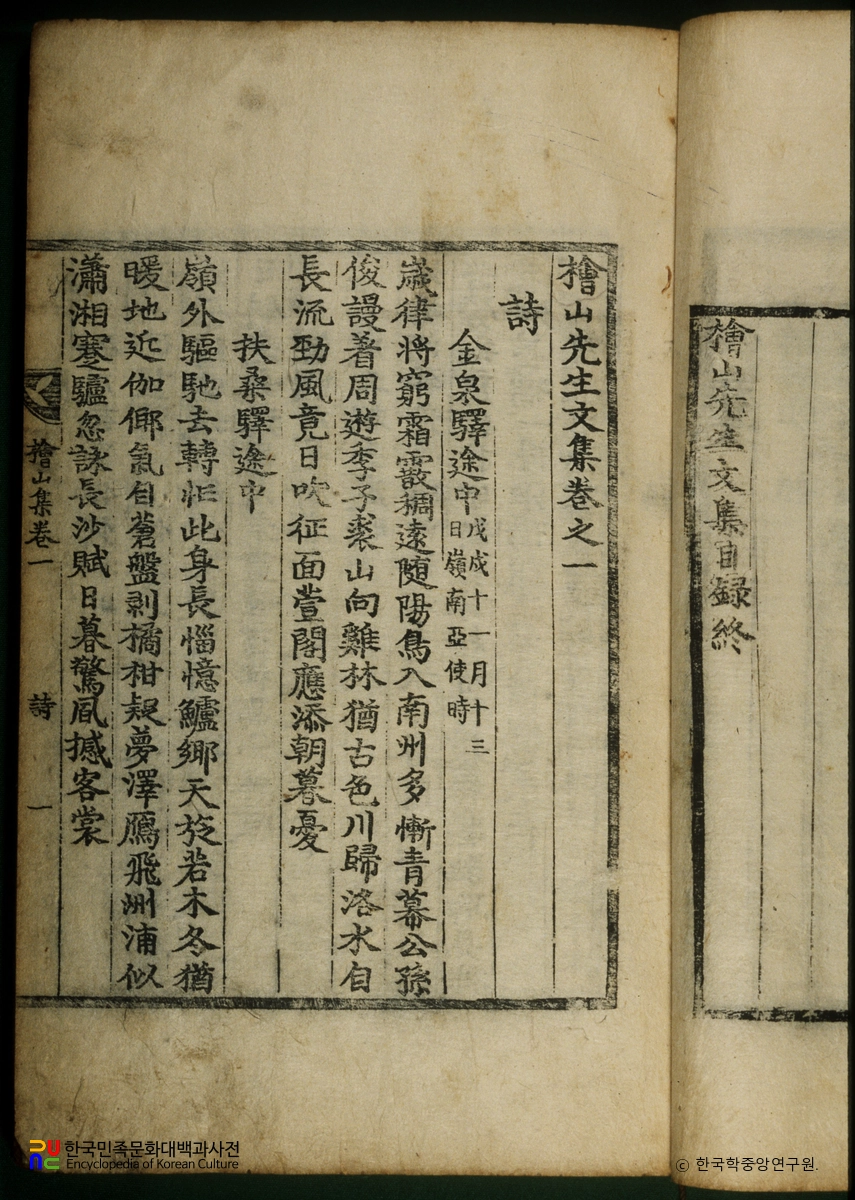 檜山先生文集目録終
檜山先生文集卷之一
詩
金泉驛途中 戊戌十一月十三
日嶺南亞使時
歲律將窮霜霰稠遠随陽鳥入南州多慚青幕公孫
俊謾着周遊季子裘山向雞林猶古色川歸洛水自
長流勁風竟日吹征面萱閣應添朝暮憂
扶桑驛途中
嶺外驅馳去轉忙此身長惱憶鱸鄉天旋若木冬猶
暖地近伽倻氣自蒼盤剥橘柑疑夢澤鴈飛洲浦似
瀟湘蹇驢忽詠長沙賦日暮驚風撼客裳
檜山集卷一
詩
一
한국민족문화대백과사전
Encyclopedia of Korean Culture
© 한국학중앙연구원.